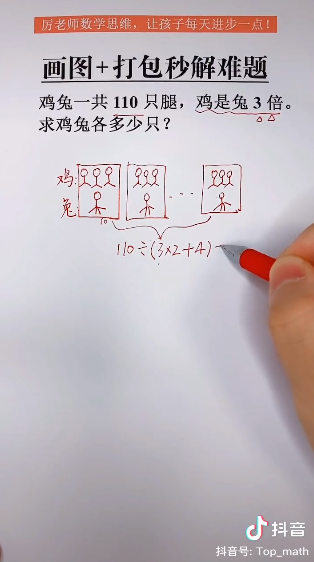 厉老师数学思维，让孩子每天进步一点！
画图+打包秒解难题
鸡兔一共 110 只腿，鸡是兔 3 倍。
求鸡兔各多少只？
鸡
兔
...
10
110÷(3×2+4)
抖音
抖音号: Top_math